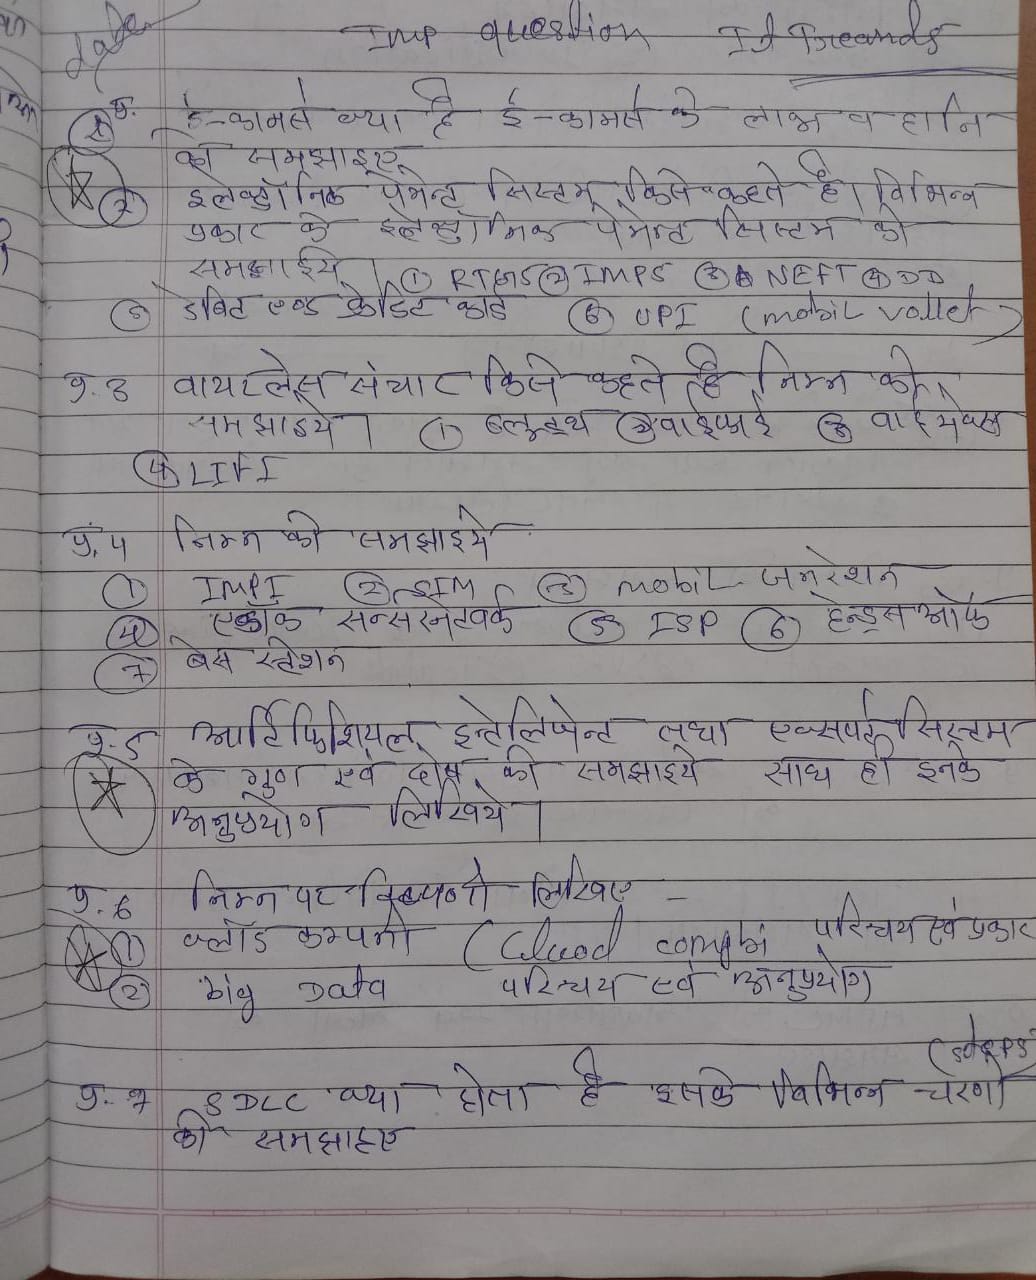 Imp question It Treands
प्र. 1 ई-कामर्स क्या है ई-कामर्स के लाभ व हानि
को समझाइए
2 इलेक्ट्रॉनिक पेमेन्ट सिस्टम् किसे कहते है। विभिन्न
प्रकार के इलेक्ट्रॉनिक पेमेन्ट सिस्टम को
समझाईये। 1 RTGS 2 IMPS 3 NEFT 4 DD
5 डेबिट एण्ड क्रेडिट कार्ड 6 UPI (mobil vallet)
प्र.3 वायरलेस संचार किसे कहते है निम्न को
समझाइये। 1 ब्लुटुथ 2 वाईफाई 3 वाईमेक्स
4 LIFI
प्र.4 निम्न को समझाइये
1 IMPI 2 SIM 3 mobil जनरेशन
4 एडॉक सन्सरनेटवर्क 5 ISP 6 हेन्ड्स ऑफ
7 बेस स्टेशन
प्र.5 आर्टिफिशियल इन्टेलिजेन्ट तथा एक्सपर्ट सिस्टम
के गुण एवं दोष को समझाइये साथ ही इनके
अनुप्रयोग लिखिये।
प्र.6 निम्न पर टिप्पणी लिखिए -
1 क्लॉड कम्पनी (Cluod परिचय एवं प्रकार
2 big Data परिचय एवं अनुप्रयोग
(steps)
प्र.7 SDLC क्या होता है इसके विभिन्न चरणो
को समझाइए